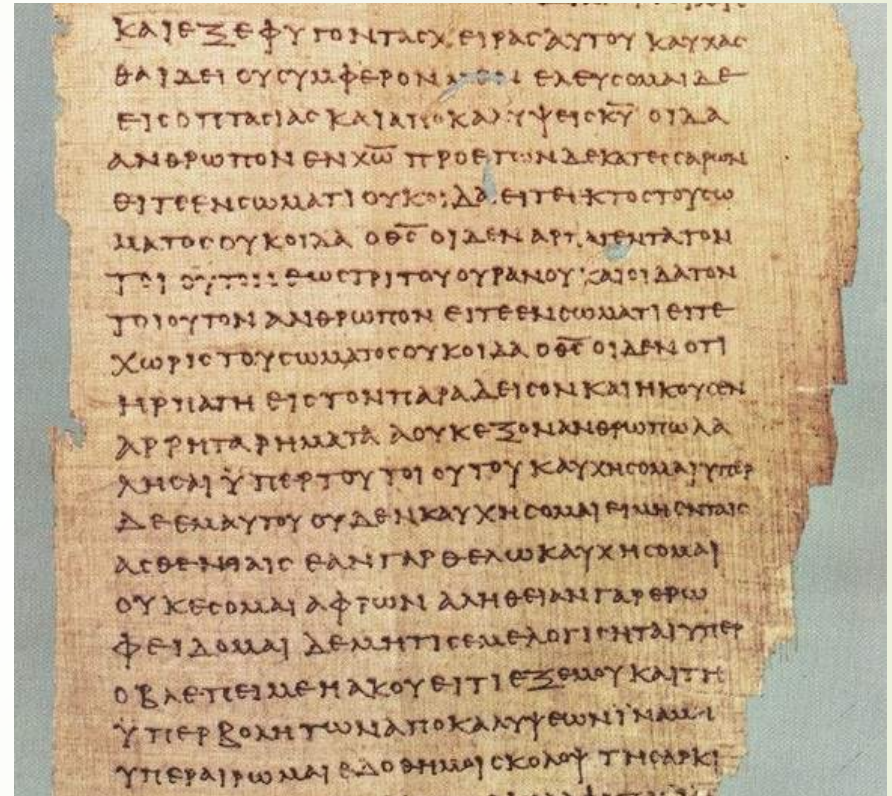 ΚΑΙΕΞΕΦΥΓΟΝΤΑΣΧΕΙΡΑΣΑΥΤΟΥ ΚΑΥΧΑϹ
ΘΑΙΔΕΙ ΟΥϹΥΜΦΕΡΟΝ ΕΛΕΥϹΟΜΑΙΔΕ
ΕΙϹΟΠΤΑϹΙΑϹ ΚΑΙΑΠΟΚΑΛΥΨΕΙϹΚ̅Υ̅ ΟΙΔΑ
ΑΝΘΡΩΠΟΝ ΕΝΧ̅Ω̅ ΠΡΟΕΤΩΝΔΕΚΑΤΕϹϹΑΡΩΝ
ΕΙΤΕΕΝϹΩΜΑΤΙΟΥΚΟΙΔΑ ΕΙΤΕΕΚΤΟϹΤΟΥϹΩ
ΜΑΤΟϹΟΥΚΟΙΔΑ ΟΘ̅Ϲ̅ ΟΙΔΕΝ ΑΡΠΑΓΕΝΤΑΤΟΝ
ΤΟΙΟΥΤΟΝΕΩϹΤΡΙΤΟΥΟΥΡΑΝΟΥ ΚΑΙΟΙΔΑΤΟΝ
ΤΟΙΟΥΤΟΝ ΑΝΘΡΩΠΟΝ ΕΙΤΕΕΝϹΩΜΑΤΙΕΙΤΕ
ΧΩΡΙϹΤΟΥϹΩΜΑΤΟϹΟΥΚΟΙΔΑ ΟΘ̅Ϲ̅ ΟΙΔΕΝ ΟΤΙ
ΗΡΠΑΓΗ ΕΙϹΤΟΝΠΑΡΑΔΕΙϹΟΝΚΑΙΗΚΟΥϹΕΝ
ΑΡΡΗΤΑΡΗΜΑΤΑ ΑΟΥΚΕΞΟΝΑΝΘΡΩΠΩΛΑ
ΛΗϹΑΙ ΫΠΕΡΤΟΥΤΟΙΟΥΤΟΥ ΚΑΥΧΗϹΟΜΑΙΥΠΕΡ
ΔΕΕΜΑΥΤΟΥ ΟΥΔΕΝΚΑΥΧΗϹΟΜΑΙ ΕΙΜΗΕΝΤΑΙϹ
ΑϹΘΕΝΕΙΑΙϹ ΕΑΝΓΑΡΘΕΛΩΚΑΥΧΗϹΟΜΑΙ
ΟΥΚΕϹΟΜΑΙ ΑΦΡΩΝ ΑΛΗΘΕΙΑΝΓΑΡΕΡΩ
ΦΕΙΔΟΜΑΙ ΔΕΜΗΤΙϹΕΜΕΛΟΓΙϹΗΤΑΙΥΠΕΡ
ΟΒΛΕΠΕΙΜΕΗΑΚΟΥΕΙΤΙΕΞΕΜΟΥΚΑΙΤΗ
ΫΠΕΡΒΟΛΗΤΩΝΑΠΟΚΑΛΥΨΕΩΝΪΝΑΜΗ
ΥΠΕΡΑΙΡΩΜΑΙ ΕΔΟΘΗΜΟΙϹΚΟΛΟΨ ΤΗϹΑΡΚΙ